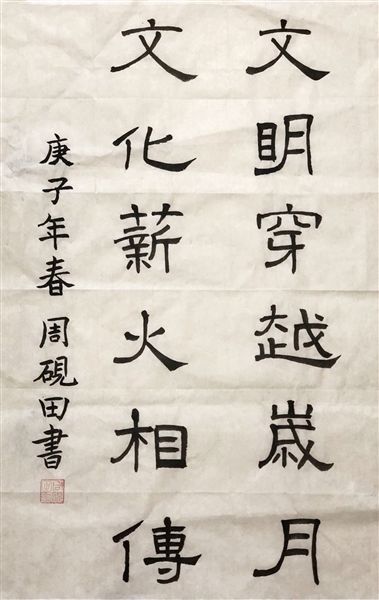 文眀穿越歲月
文化薪火相傳
庚子年春 周硯田書